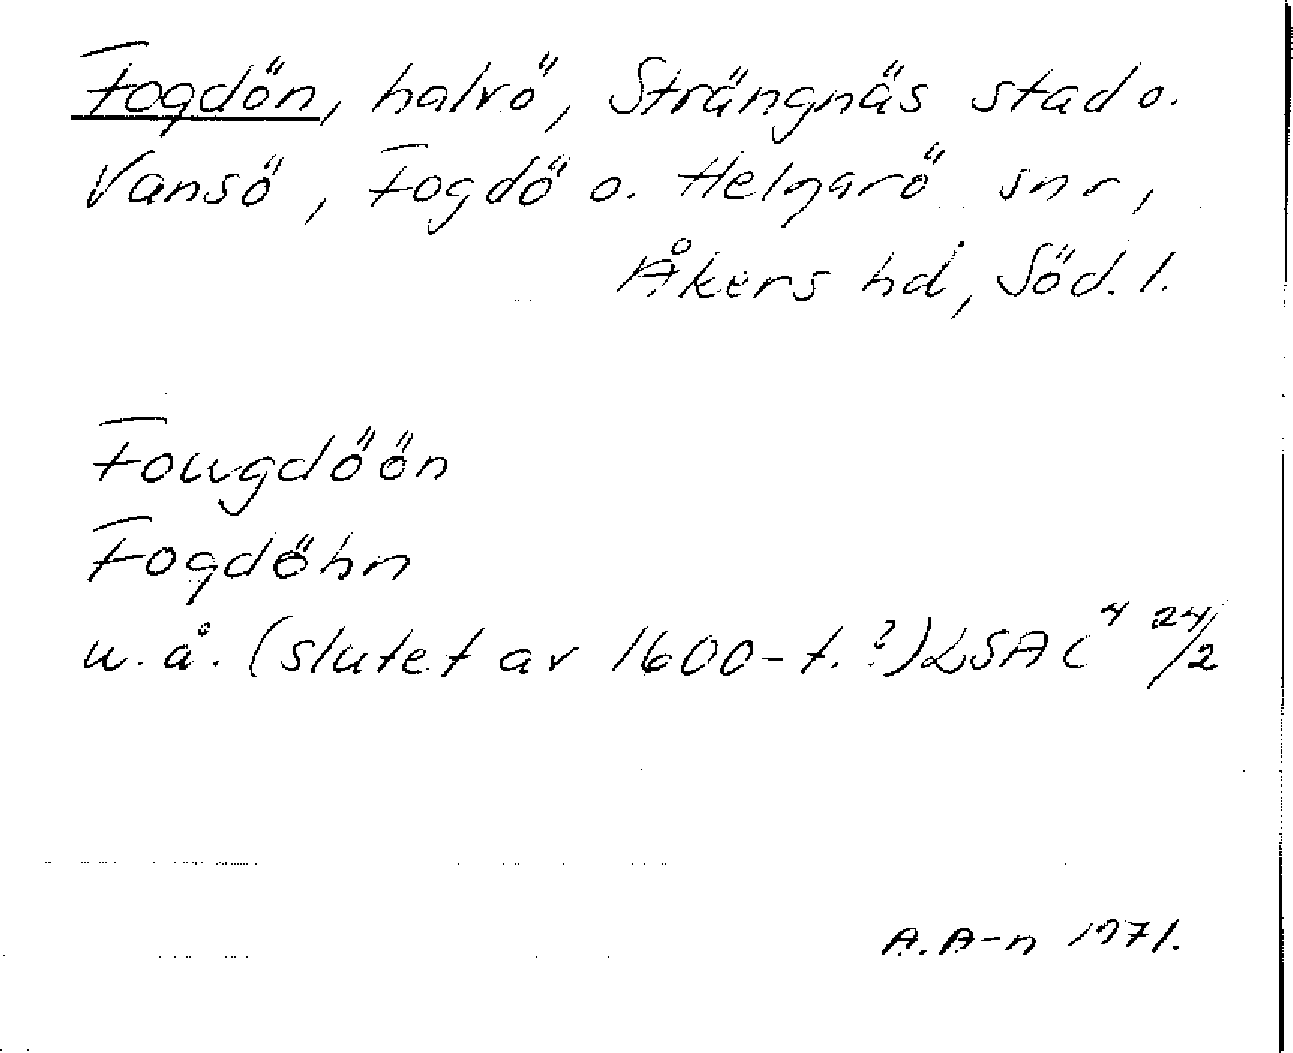 Fogdön, halvö, Strängnäs stad o.
Vansö, Fogdö o. Helgarö snr,
Åkers hd, Söd. l.
Fougdöön
Fogdöhn
u.å. (slutet av 1600-t.?) LSA C⁴ 24/2
A. A-n 1971.